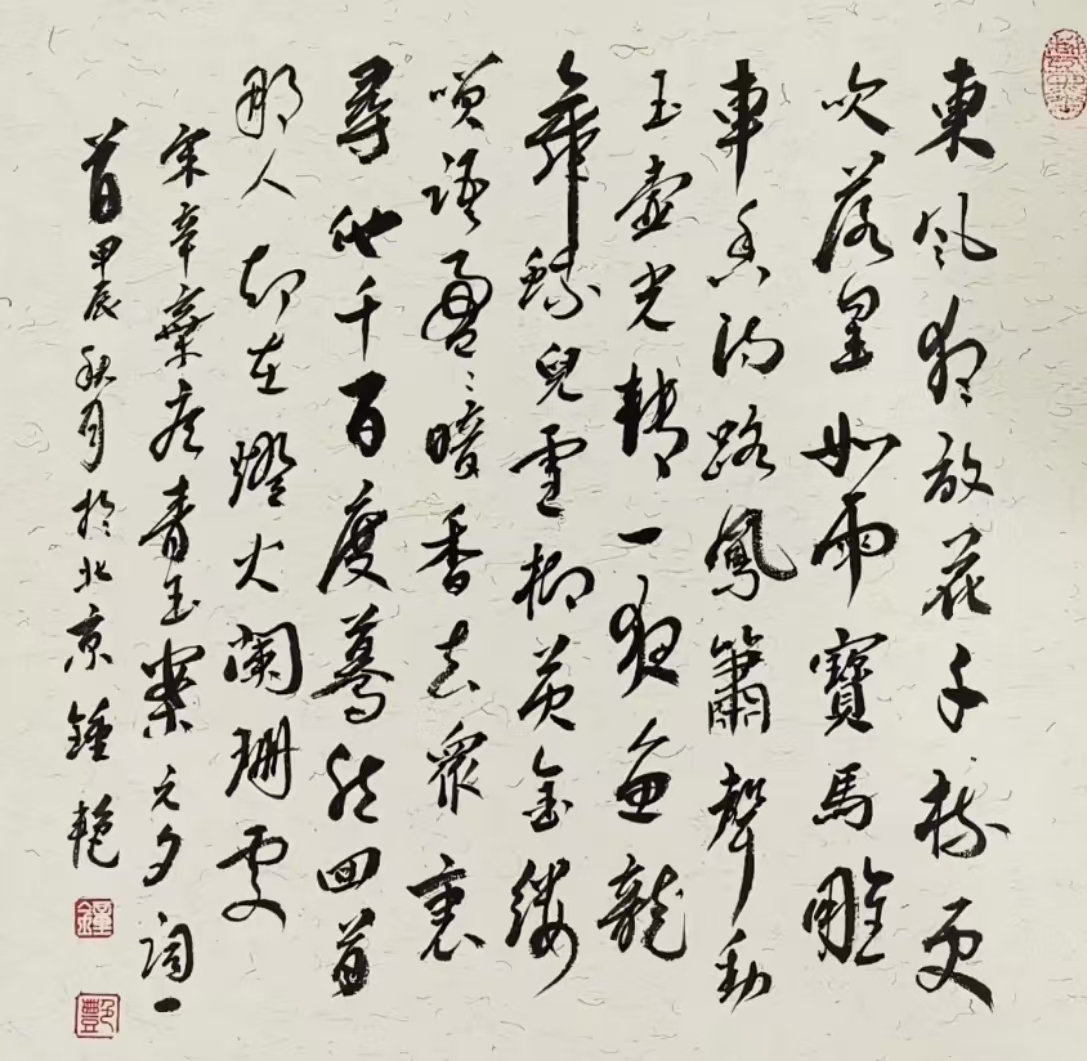 東風夜放花千樹更
吹落星如雨寶馬雕
車香滿路鳳簫聲動
玉壺光轉一夜魚龍
舞蛾兒雪柳黃金縷
笑語盈〻暗香去眾裏
尋他千百度驀然回首
那人却在燈火闌珊處
宋辛棄疾青玉案元夕詞一
首甲辰秋月於北京鍾艳
鐘
艷